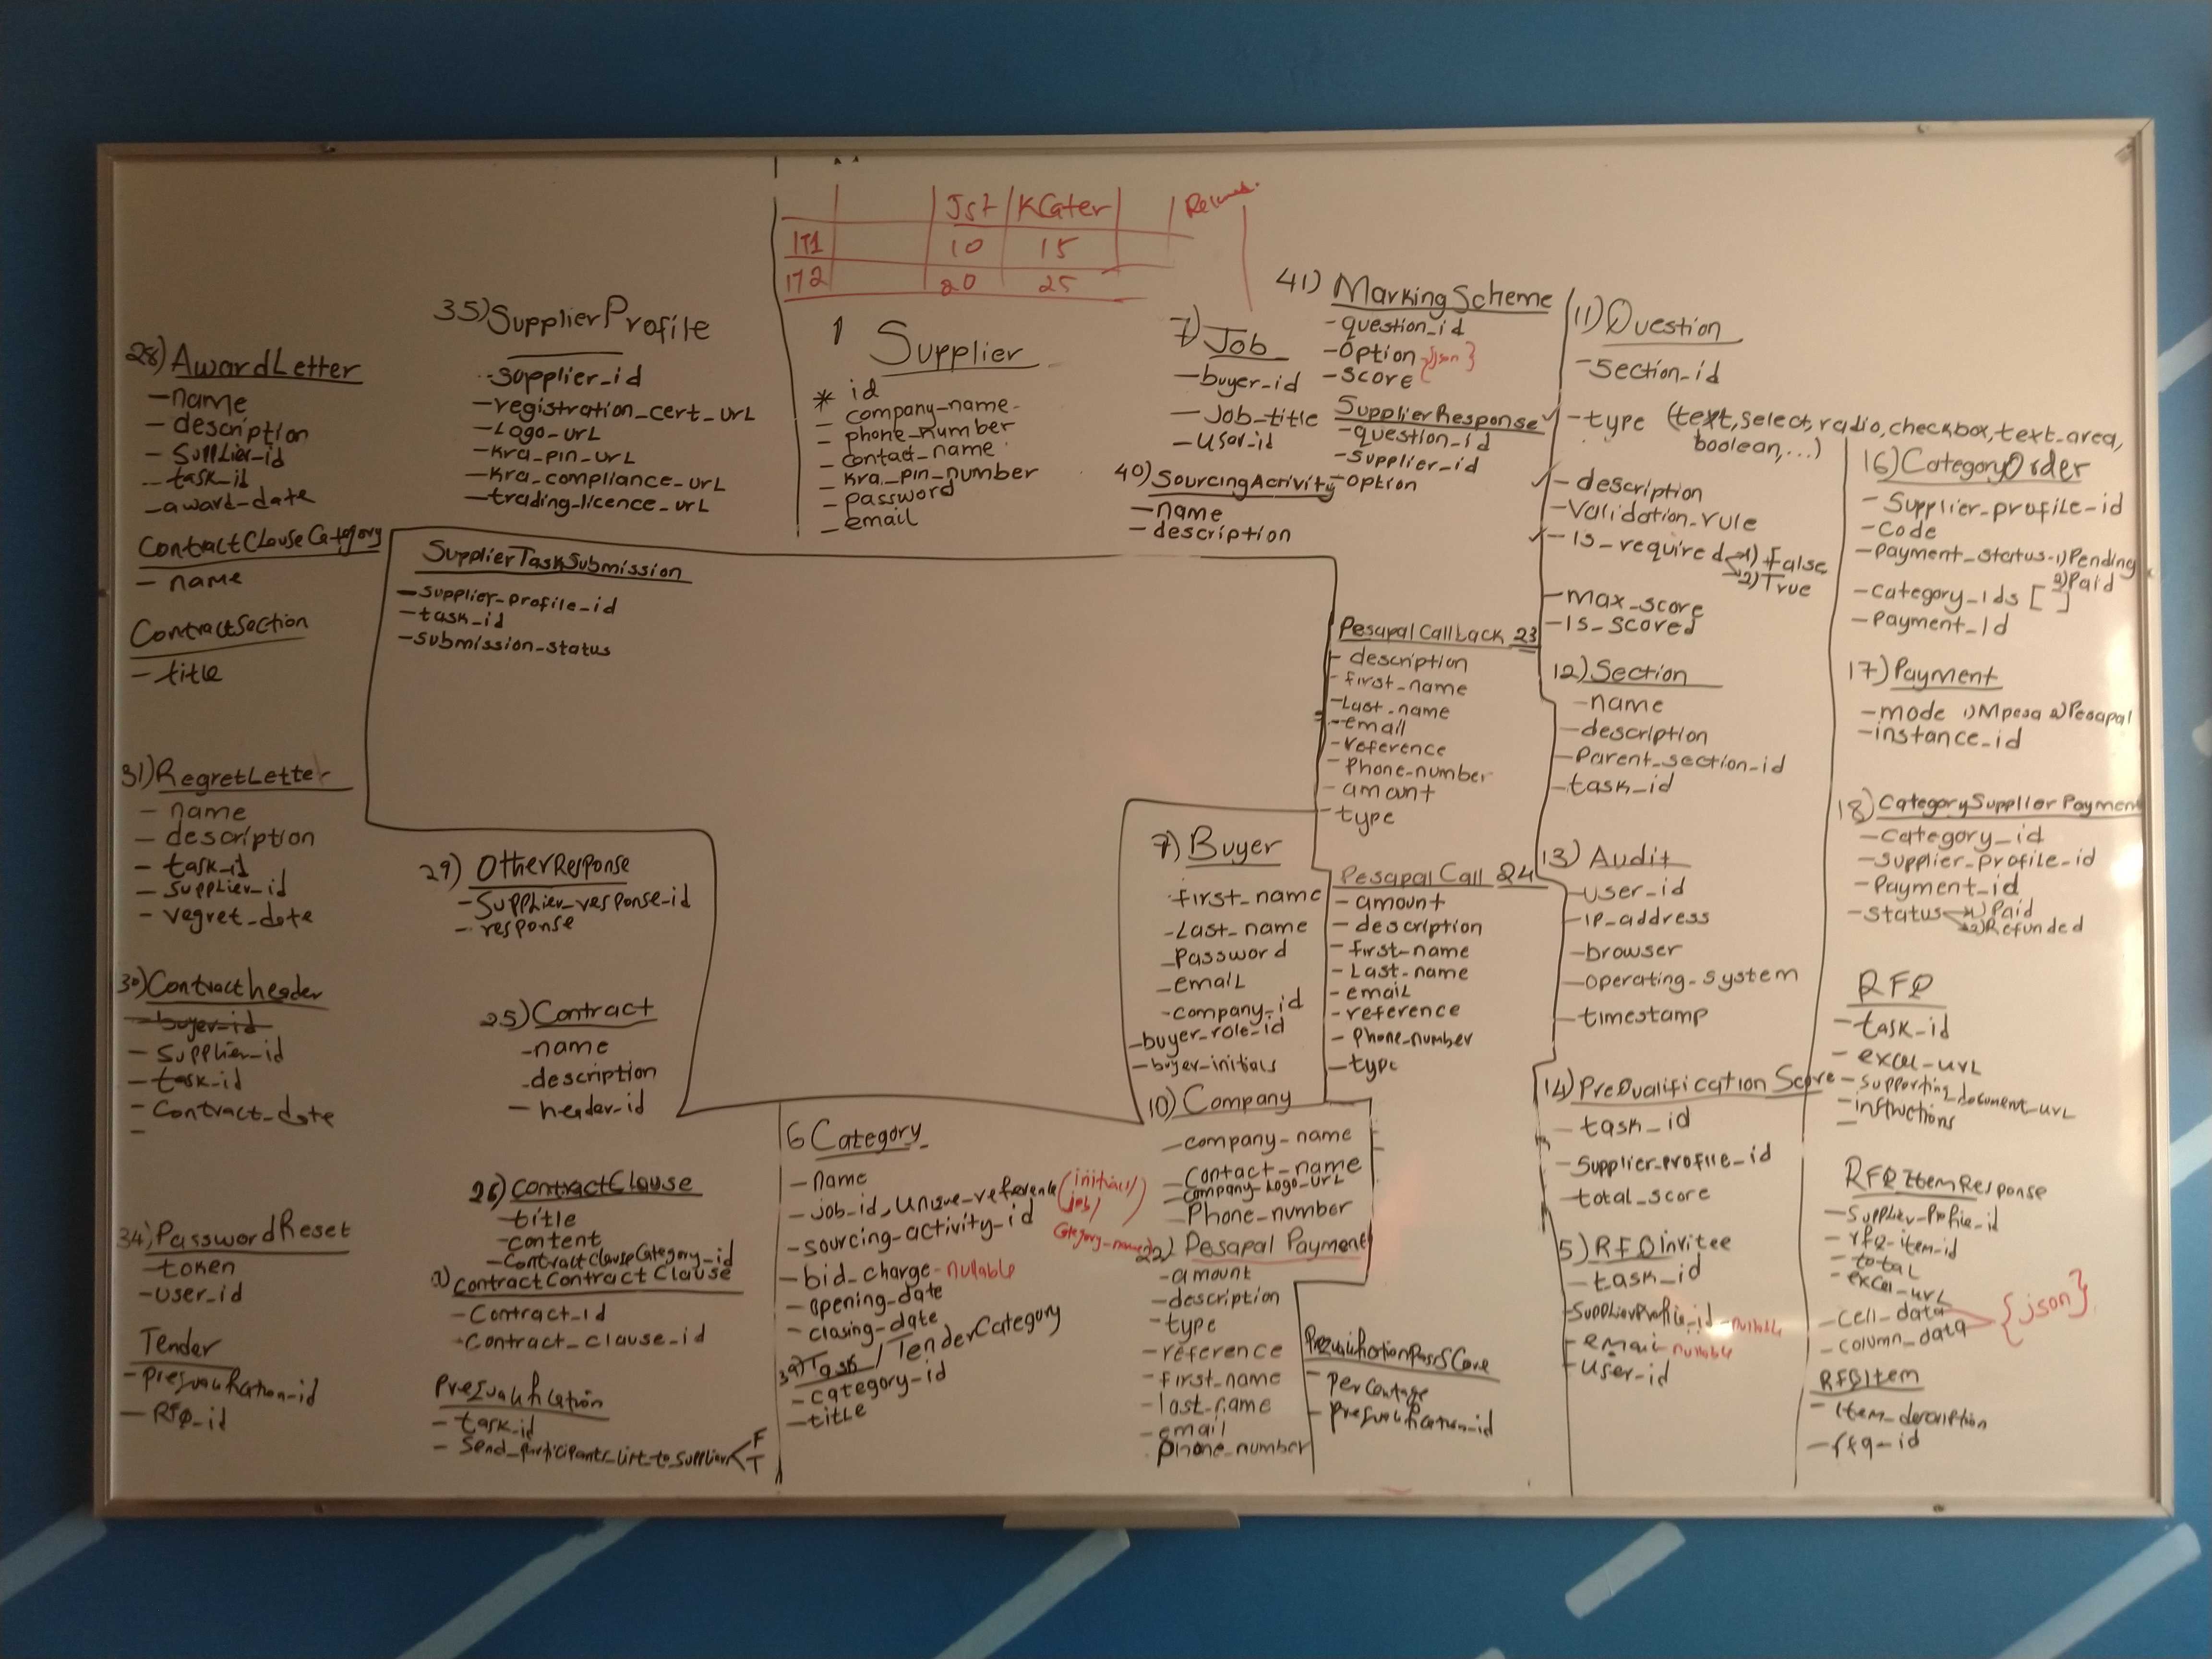 Jst KCater
IT1 10 15
IT2 20 25
28) AwardLetter
- name
- description
- Supplier_id
- task_id
- award_date
ContractClauseCategory
- name
ContractSection
- title
31) RegretLetter
- name
- description
- task_id
- supplier_id
- regret_date
30) Contractheader
- buyer_id
- Supplier_id
- task_id
- Contract_date
-
34) PasswordReset
- token
- user_id
Tender
- prequalification_id
- RFQ_id
35) SupplierProfile
- supplier_id
- registration_cert_url
- Logo_url
- kra_pin_url
- kra_compliance_url
- trading_licence_url
SupplierTaskSubmission
- supplier_profile_id
- task_id
- submission_status
29) OtherResponse
- Supplier_response_id
- response
25) Contract
- name
- description
- header_id
26) ContractClause
- title
- content
- ContractClauseCategory_id
ContractContractClause
- Contract_id
- Contract_clause_id
Prequalification
- task_id
- Send_participants_list_to_supplier F
T
1 Supplier
* id
- company_name
- phone_number
- contact_name
- kra_pin_number
- password
- email
6 Category
- name
- job_id, unique_reference (initials/
job/
Category_name)
- sourcing_activity_id
- bid_charge - nullable
- opening_date
- closing_date
39) Task / TenderCategory
- category_id
- title
7) Job
- buyer_id
- Job_title
- user_id
40) SourcingActivity
- name
- description
41) MarkingScheme
- question_id
- Option {json}
- score
SupplierResponse
- question_id
- supplier_id
- option
Pesapal Callback 23
- description
- first_name
- Last_name
- email
- reference
- Phone_number
- amount
- type
7) Buyer
- first_name
- Last_name
- Password
- email
- company_id
- buyer_role_id
- buyer_initials
Pesapal Call 24
- amount
- description
- first_name
- Last_name
- email
- reference
- Phone_number
- type
10) Company
- company_name
- Contact_name
- Company_Logo_url
- Phone_number
22) Pesapal Payment
- amount
- description
- type
- reference
- first_name
- last_name
- email
- phone_number
PrequalificationPassScore
- percentage
- prequalification_id
11) Question
- Section_id
- type (text, select, radio, checkbox, text_area,
boolean, ...)
- description
- Validation_rule
- Is_required 1) False
2) True
- max_score
- Is_scored
12) Section
- name
- description
- Parent_section_id
- task_id
13) Audit
- user_id
- IP_address
- browser
- operating_system
- timestamp
14) PreQualification Score
- task_id
- Supplier_profile_id
- total_score
5) RFQInvitee
- task_id
- SupplierProfile_id - nullable
- email - nullable
- user_id
16) CategoryOrder
- Supplier_profile_id
- Code
- Payment_status - 1) Pending
2) Paid
- Category_Ids [ ]
- Payment_Id
17) Payment
- mode 1) Mpesa 2) Pesapal
- instance_id
18) CategorySupplierPayment
- Category_id
- Supplier_profile_id
- Payment_id
- status 1) Paid
2) Refunded
RFQ
- task_id
- excel_url
- Supporting_document_url
- instructions
-
RFQItemResponse
- Supplier_Profile_id
- rfq_item_id
- total
- excel_url
- cell_data {json}
- column_data
RFQItem
- item_description
- rfq_id